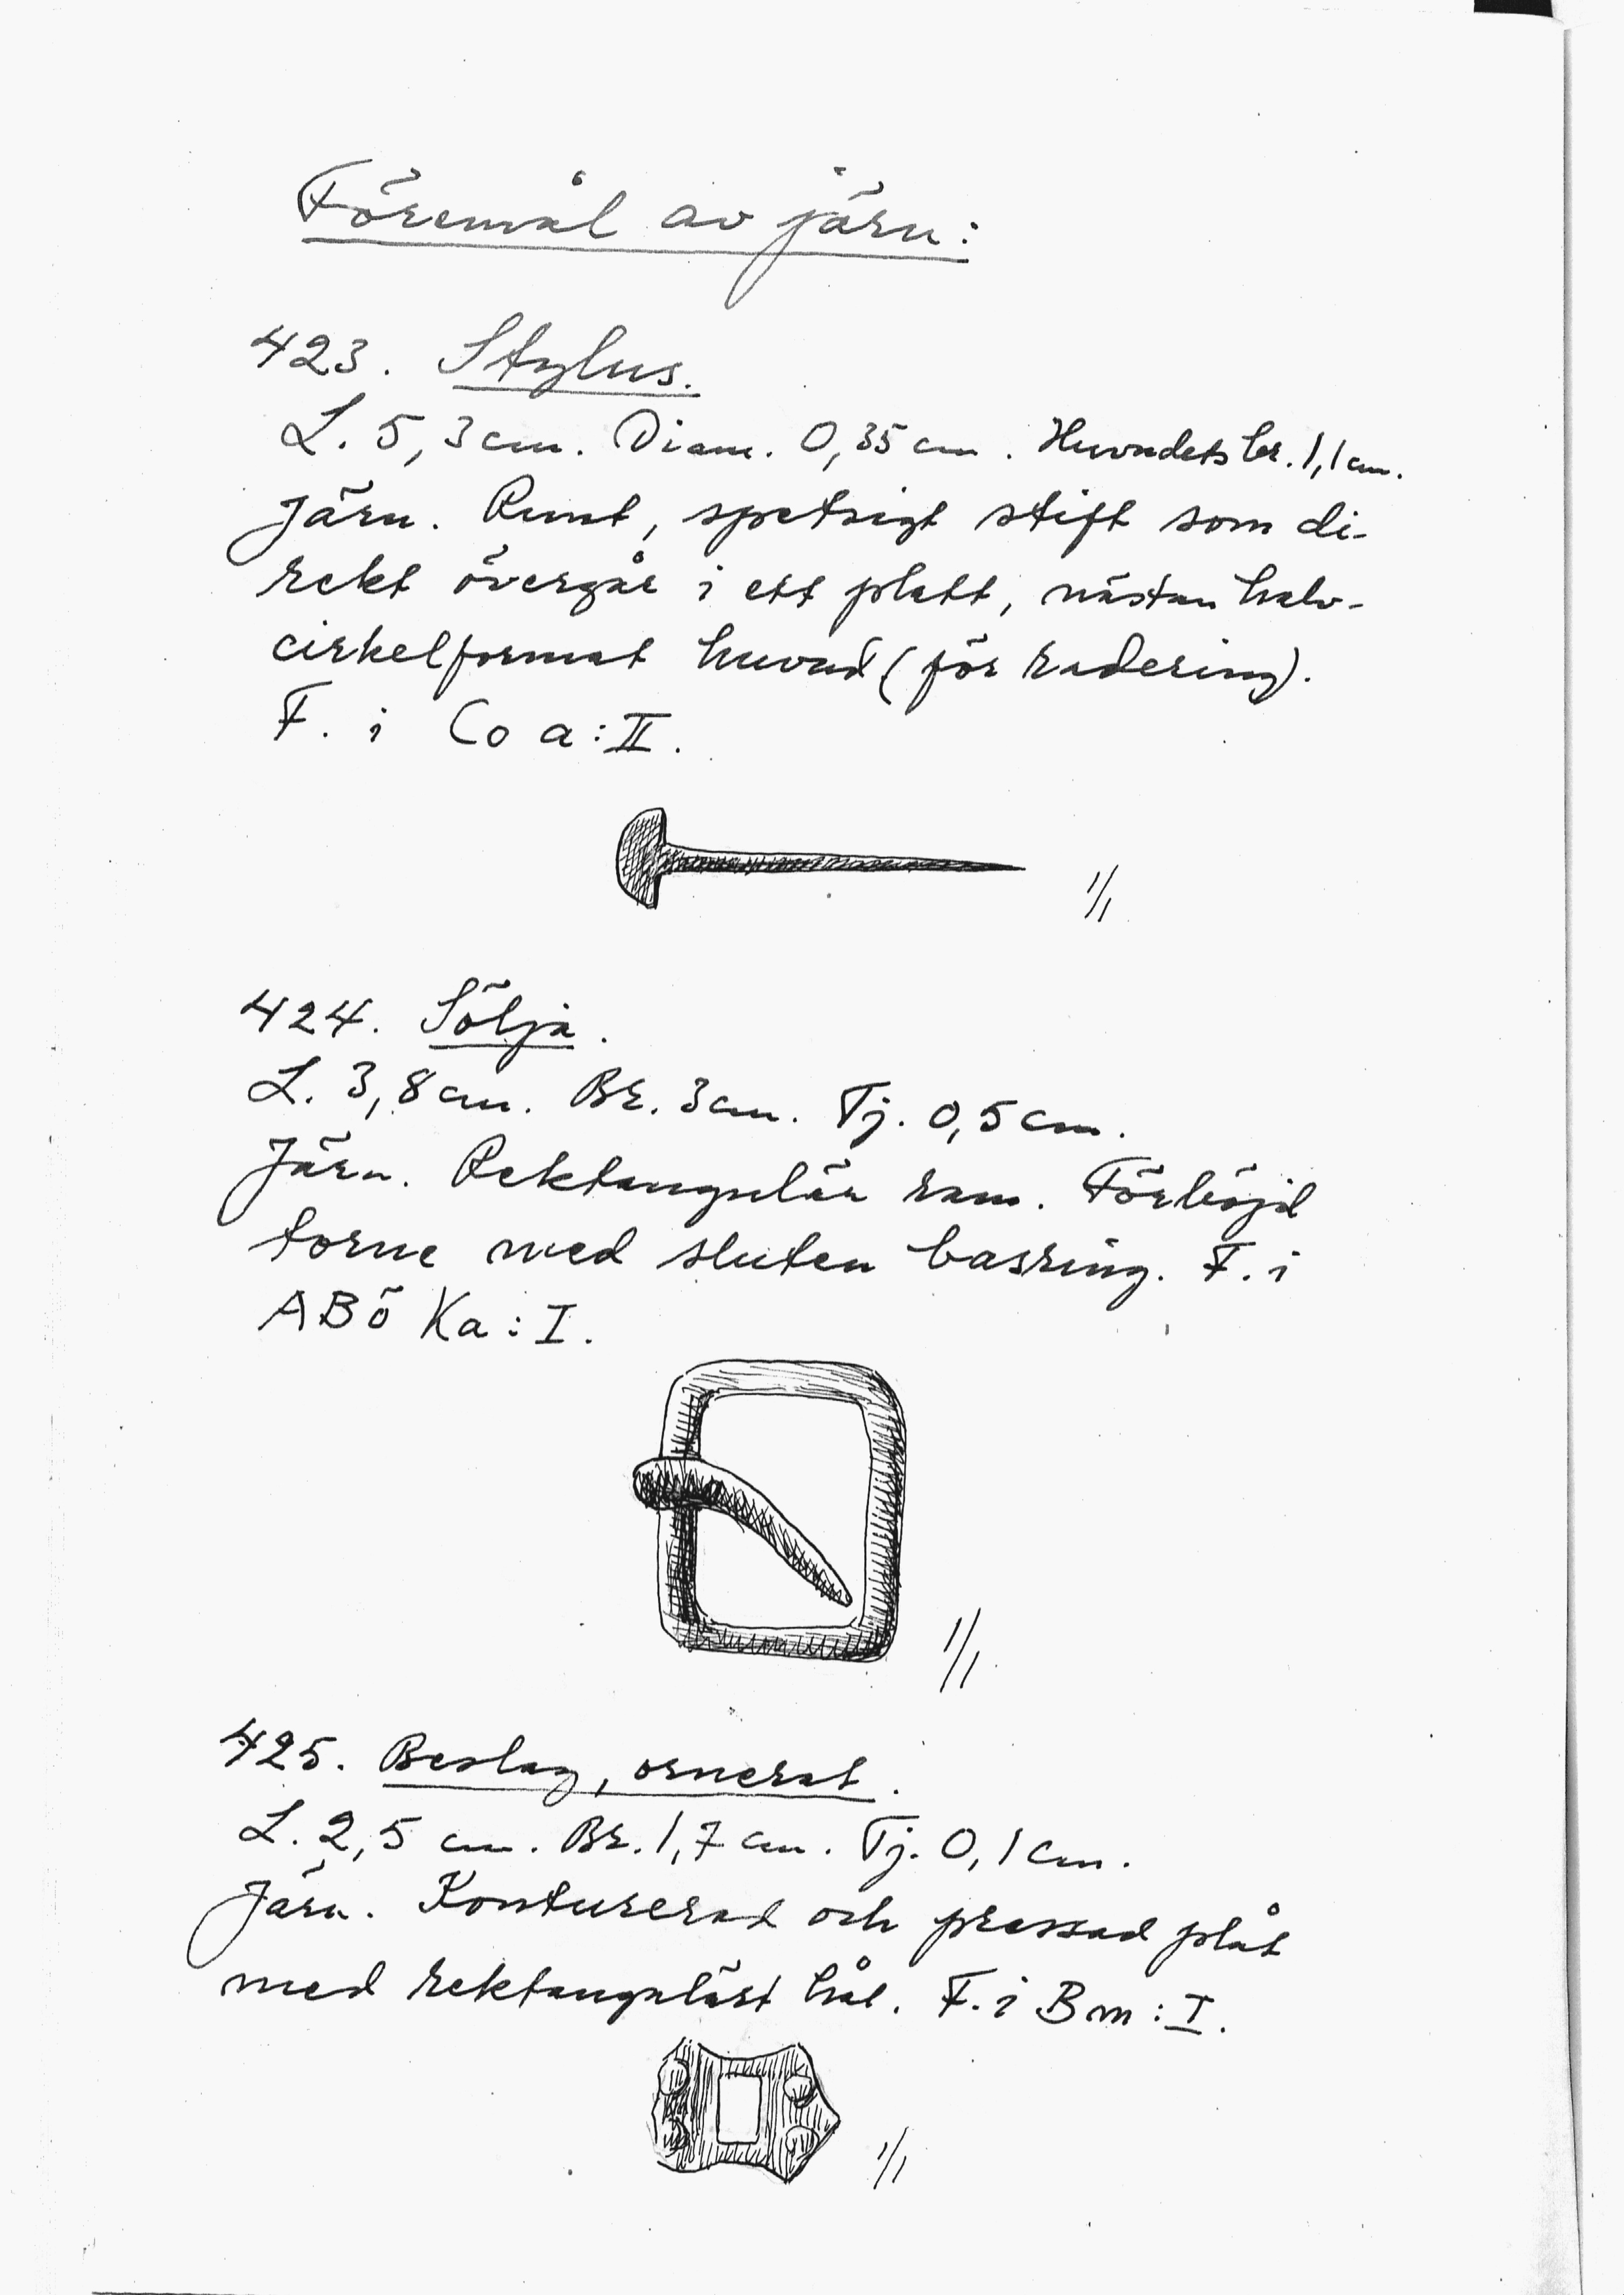 Föremål av järn:
423. Stylus.
L. 5,3 cm. Diam. 0,35 cm. Huvudets br. 1,1 cm.
Järn. Runt, spetsigt stift som di-
rekt övergår i ett platt, nästan halv-
cirkelformat huvud (för radering).
F. i Co a:II.
1/1
424. Sölja.
L. 3,8 cm. Br. 3 cm. Tj. 0,5 cm.
Järn. Rektangulär ram. Förböjd
torne med sluten basring. F. i
ABö Ka:I.
1/1
425. Beslag, ornerat.
L. 2,5 cm. Br. 1,7 cm. Tj. 0,1 cm.
Järn. Konturerad och pressad plåt
med rektangulärt hål. F. i Bm:I.
1/1